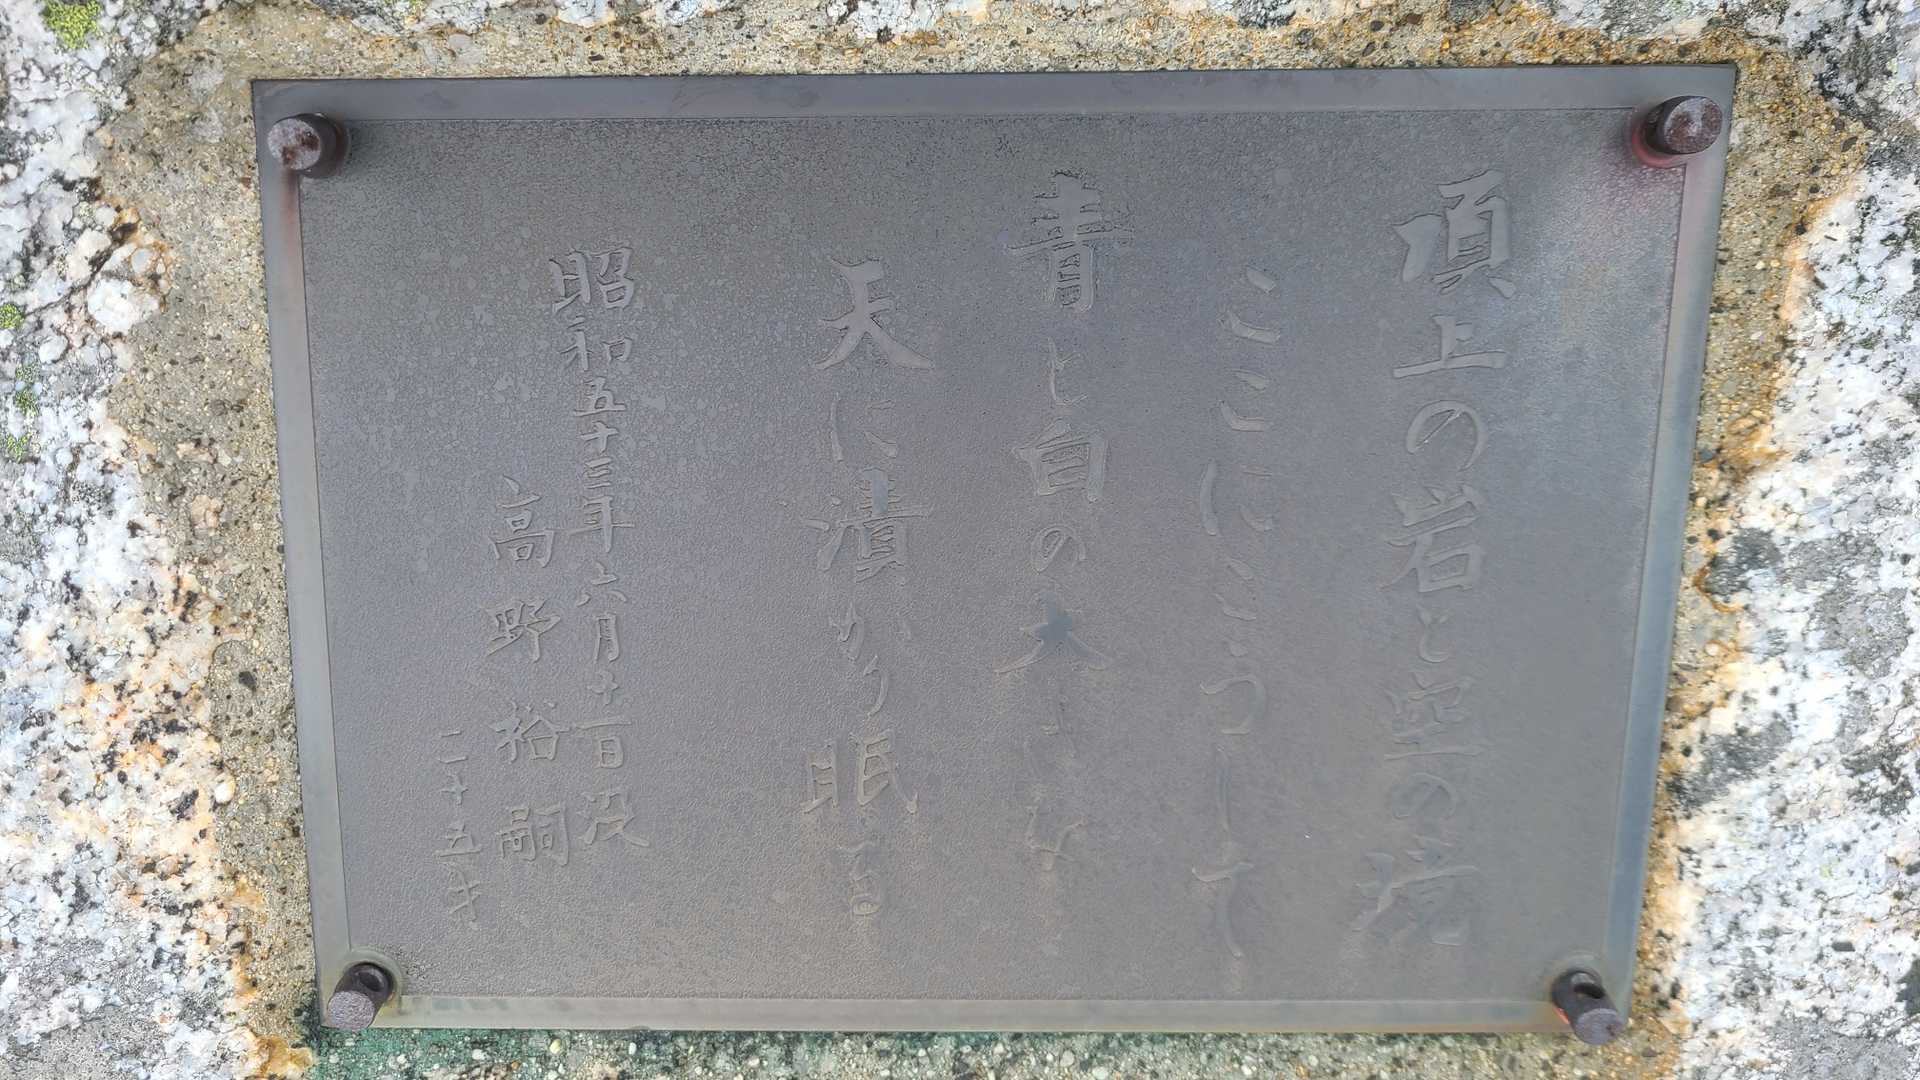 頂上の岩と空の境
ここにこうして
青と白の大きな
天に漬かり眠る
昭和五十三年六月十一日没
高野裕嗣
二十五才